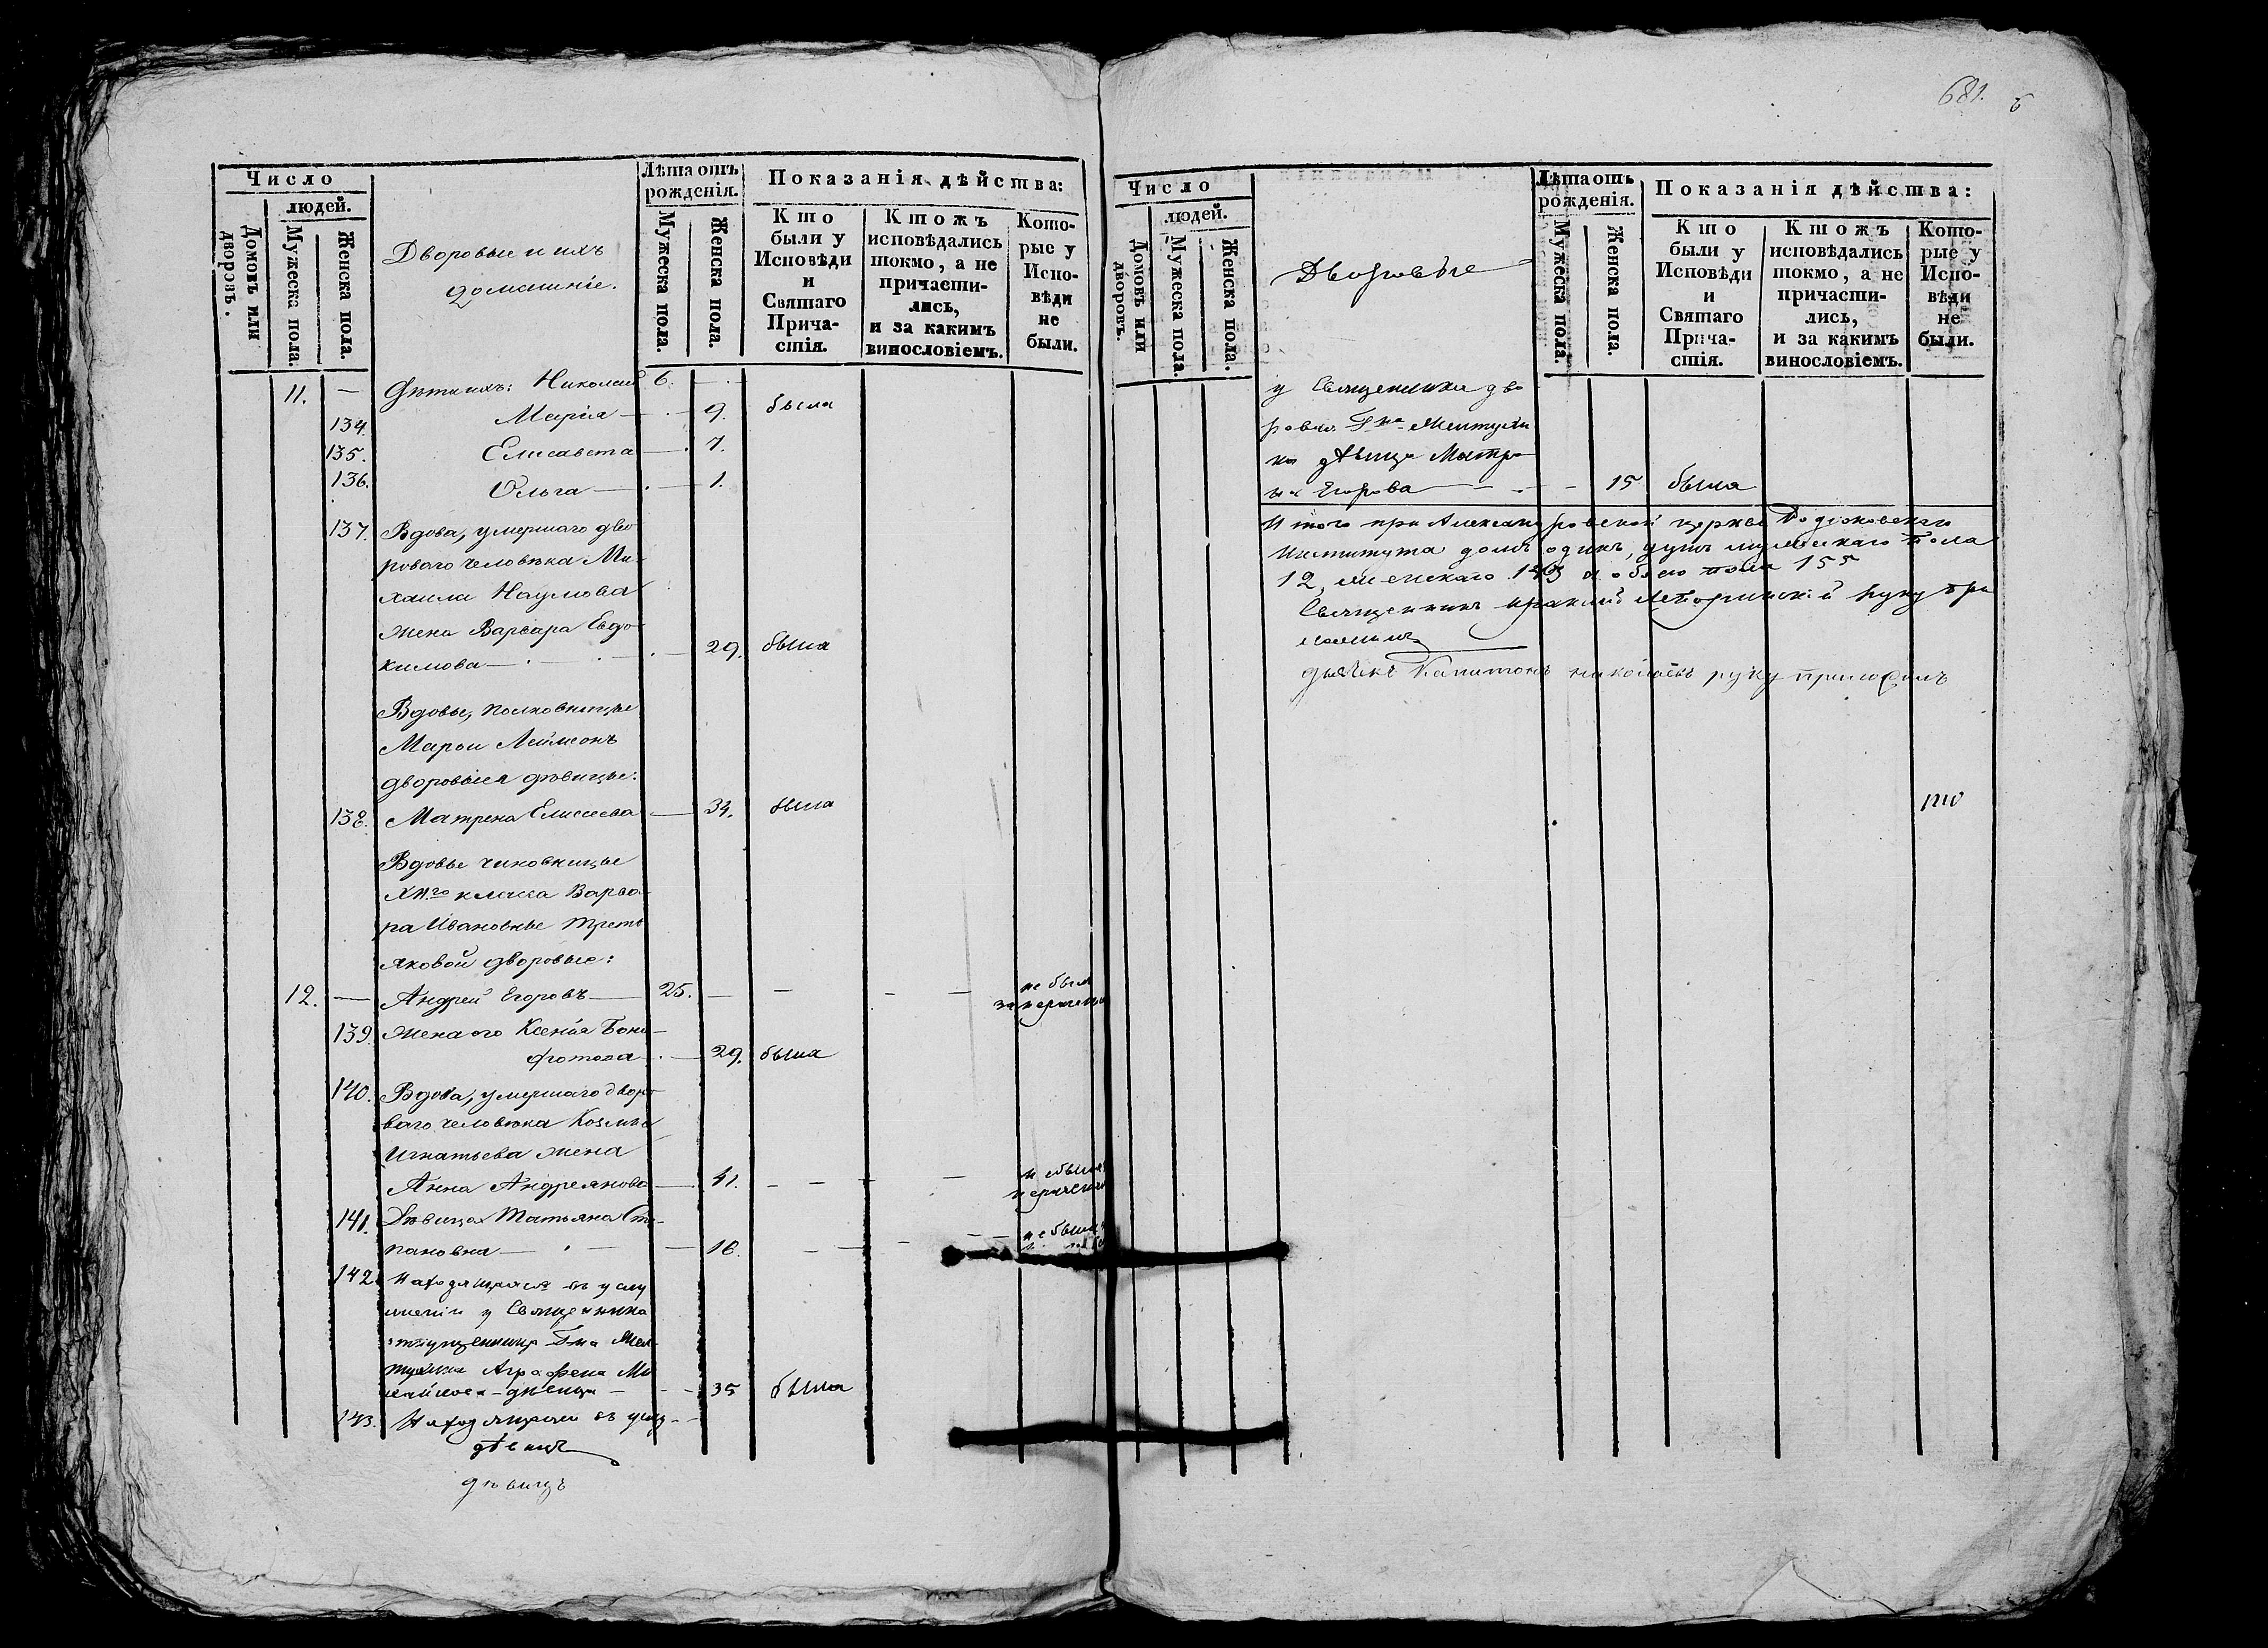 Число
людей.
Домовъ или дворовъ.
Мужеска пола.
Женска пола.
Дворовые и ихъ
домашніе.
Лѣта отъ
рожденія.
Мужеска пола.
Женска пола.
Показанія дѣйства:
Кто
были у
Исповѣди
и
Святаго
Прича-
стія.
Ктожъ
исповѣдались
токмо, а не
причасти-
лись,
и за какимъ
винословіемъ.
Кото-
рые у
Испо-
вѣди
не
были.
11. — Дѣти ихъ: Николай 6. —
134. Марія — 9. была
135. Елисавета — 7.
136. Ольга — 1.
137. Вдова, умершаго дво
роваго человѣка Ми-
хаила Наумова
жена Варвара Евдо-
кимова — 29. была
Вдовы, полковницы
Марьи
дворовыя дѣвицы:
138. Матрена Елисеева — 34. была
Вдовы чиновницы
класса Варва-
ра Ивановны Треть
яковой дворовые:
12. — Андрей Егоровъ — 25. — — — — не былъ
139. Жена его Ксенія Бони-
фатова — 29. была
140. Вдова, умершаго дворо-
ваго человѣка Козмы
Игнатьева жена
Анна Андреянова — 41. — — — — не была
141. Дѣвица Татьяна Сте-
пановна — 16. — — — — не была
142. Находящаяся въ услу
женіи у Священника
Г-на
Аграфена Ми
дѣвица — 35 была
143. Находящаяся въ услу-
дѣвицъ
дѣвицъ
681.
Число
людей.
Домовъ или дворовъ.
Мужеска пола.
Женска пола.
Дворовые
Лѣта отъ
рожденія.
Мужеска пола.
Женска пола.
Показанія дѣйства:
Кто
были у
Исповѣди
и
Святаго
Прича-
стія.
Ктожъ
исповѣдались
токмо, а не
причасти-
лись,
и за какимъ
винословіемъ.
Кото-
рые у
Испо-
вѣди
не
были.
у Священника дво
ровая Г-на
дѣвица Матре
на Егорова — 15 была
Итого при Александровской церкви
Института домъ одинъ, душъ мужескаго пола
12, женскаго 143 и обоего пола 155
Священникъ руку при
ложилъ
дьячекъ Капитонъ руку приложилъ